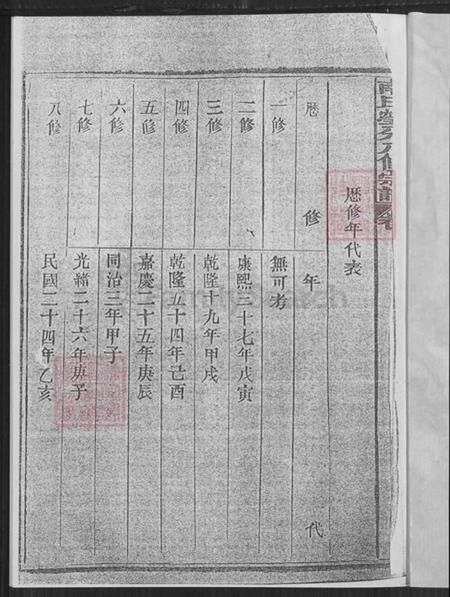 八修宗譜
歷修年代表
歷修年代
一修 無可考
二修 康熙三十七年戊寅
三修 乾隆十九年甲戌
四修 乾隆五十四年己酉
五修 嘉慶二十五年庚辰
六修 同治三年甲子
七修 光緒二十六年庚子
八修 民國二十四年乙亥